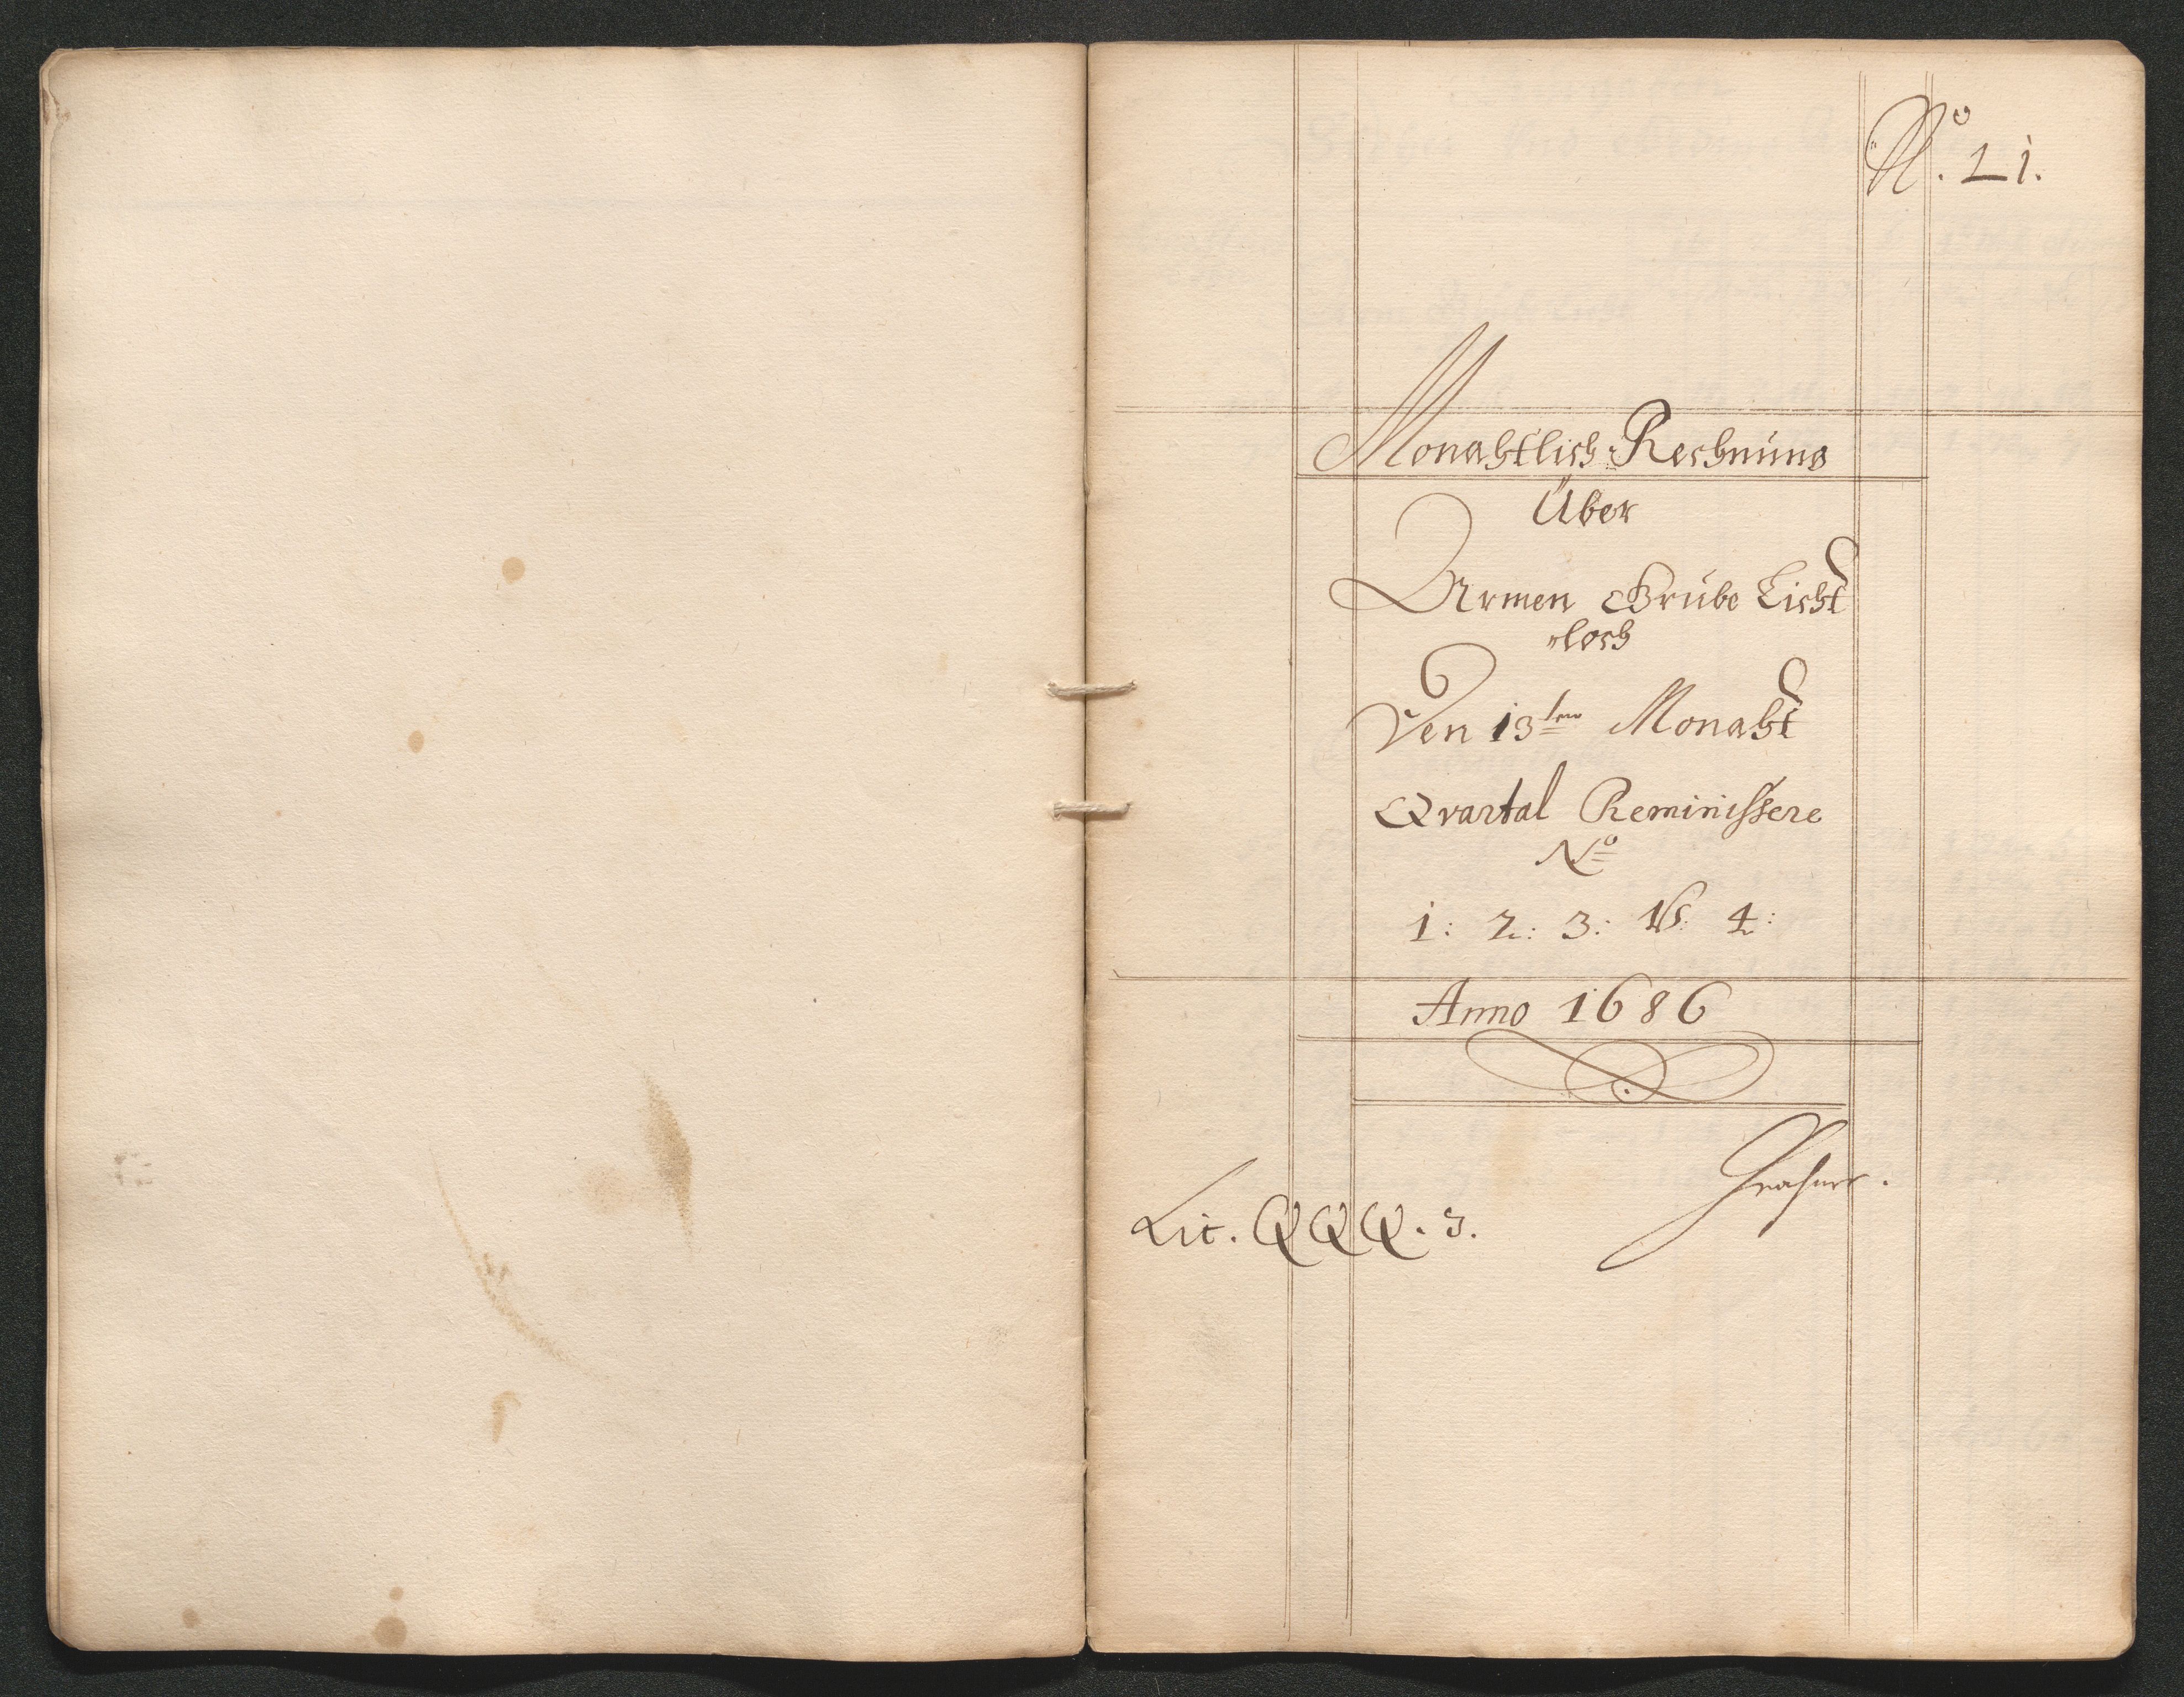 No. 21.
Monahtlich Rechnung
Über
Armen Grube Licht
loch
Den 13ten Monaht
Qvartal Reminiscere
No
1: 2: 3: 4:
Anno 1686
Lit. QQQ. 3.